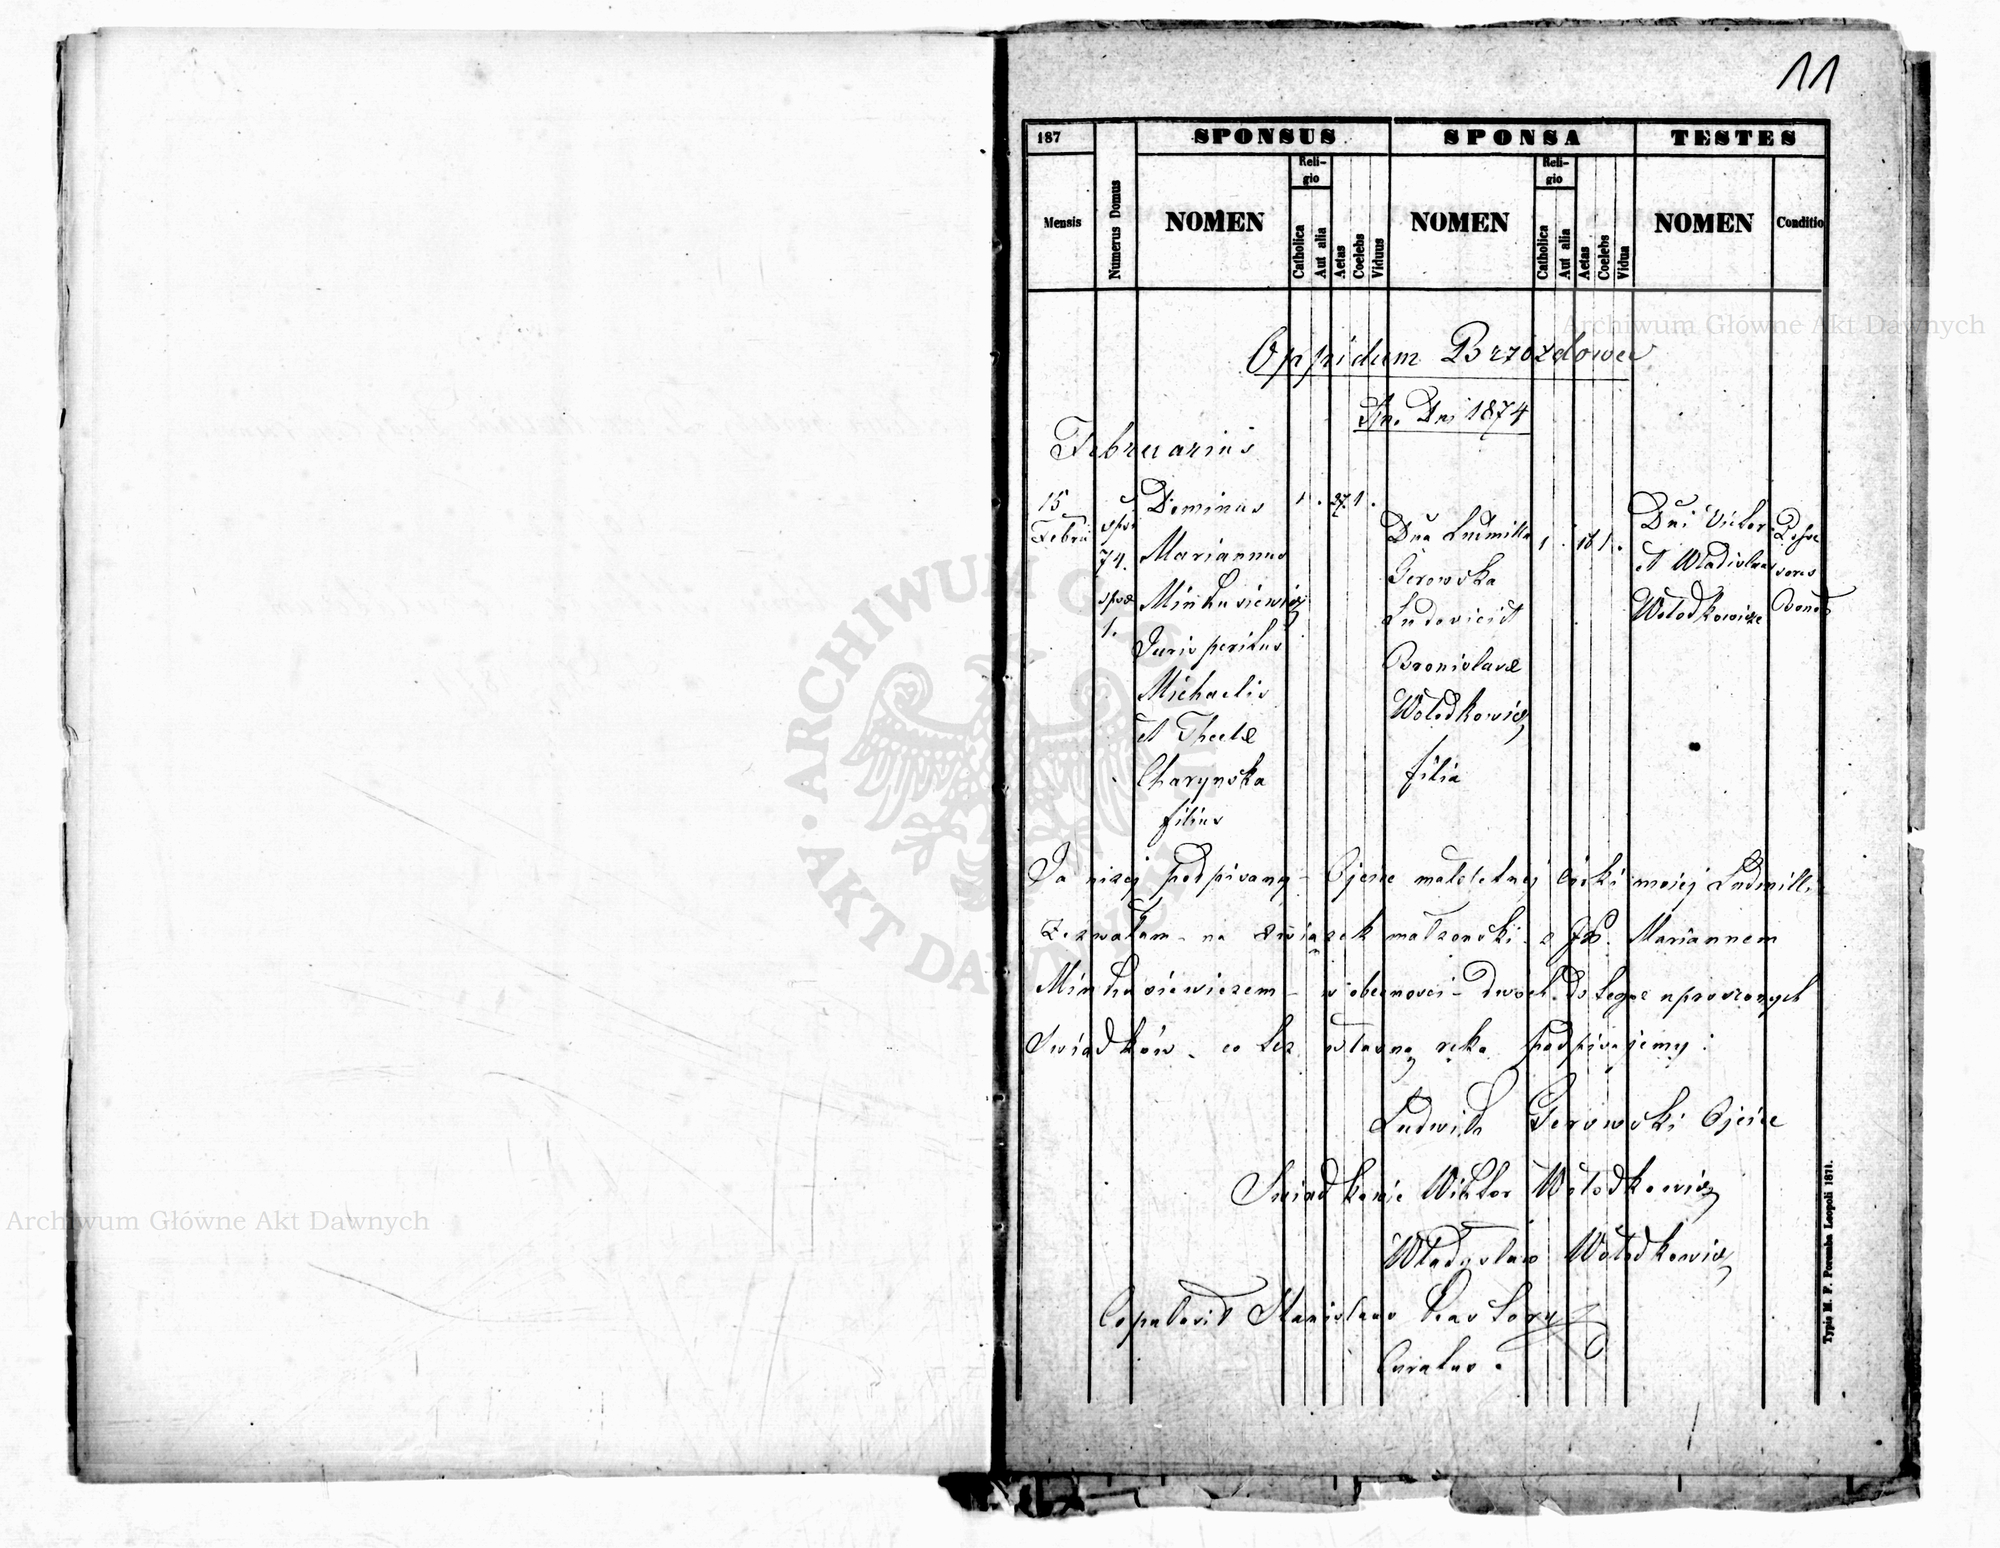 11
187 SPONSUS SPONSA TESTES
Mensis Numerus Domus NOMEN Religio Catholica Aut alia Aetas Coelebs Viduus NOMEN Religio Catholica Aut alia Aetas Coelebs Vidua NOMEN Conditio
Archiwum Główne Akt Dawnych
Oppidum Brzozdowce
An. Dni 1874
Februarius
15
Febru
74.
1.
Dominus
Mariannus
Minkusiewicz
Juris peritus
Michaelis
et Theclæ
Charynska
filius
1 . 27 1 .
Dna Ludmilla
Gerowska
Ludovici et
Bronislavæ
Wołodkowicz
filia
1 . 16 1 .
Dni Victor
et Wladislaus
Wołodkowicze
Bonor
Ja niżej podpisany - Ojciec małoletniej Córki mojej Ludmilli
Zezwalam - na związek małżonski z JP. Mariannem
Minkusiewiczem - w obecności - dwóch do tego uproszonych
Swiadków - co też własną ręką podpisujemy :
Ludwik Gerowski Ojciec
Swiadkowie Wiktor Wołodkowicz
Władysław Wołodkowicz
Copulavit Stanislaus
Curatus .
Typis M. F. Poremba Leopoli 1871.
ARCHIWUM GŁÓWNE AKT DAWNYCH
Archiwum Główne Akt Dawnych